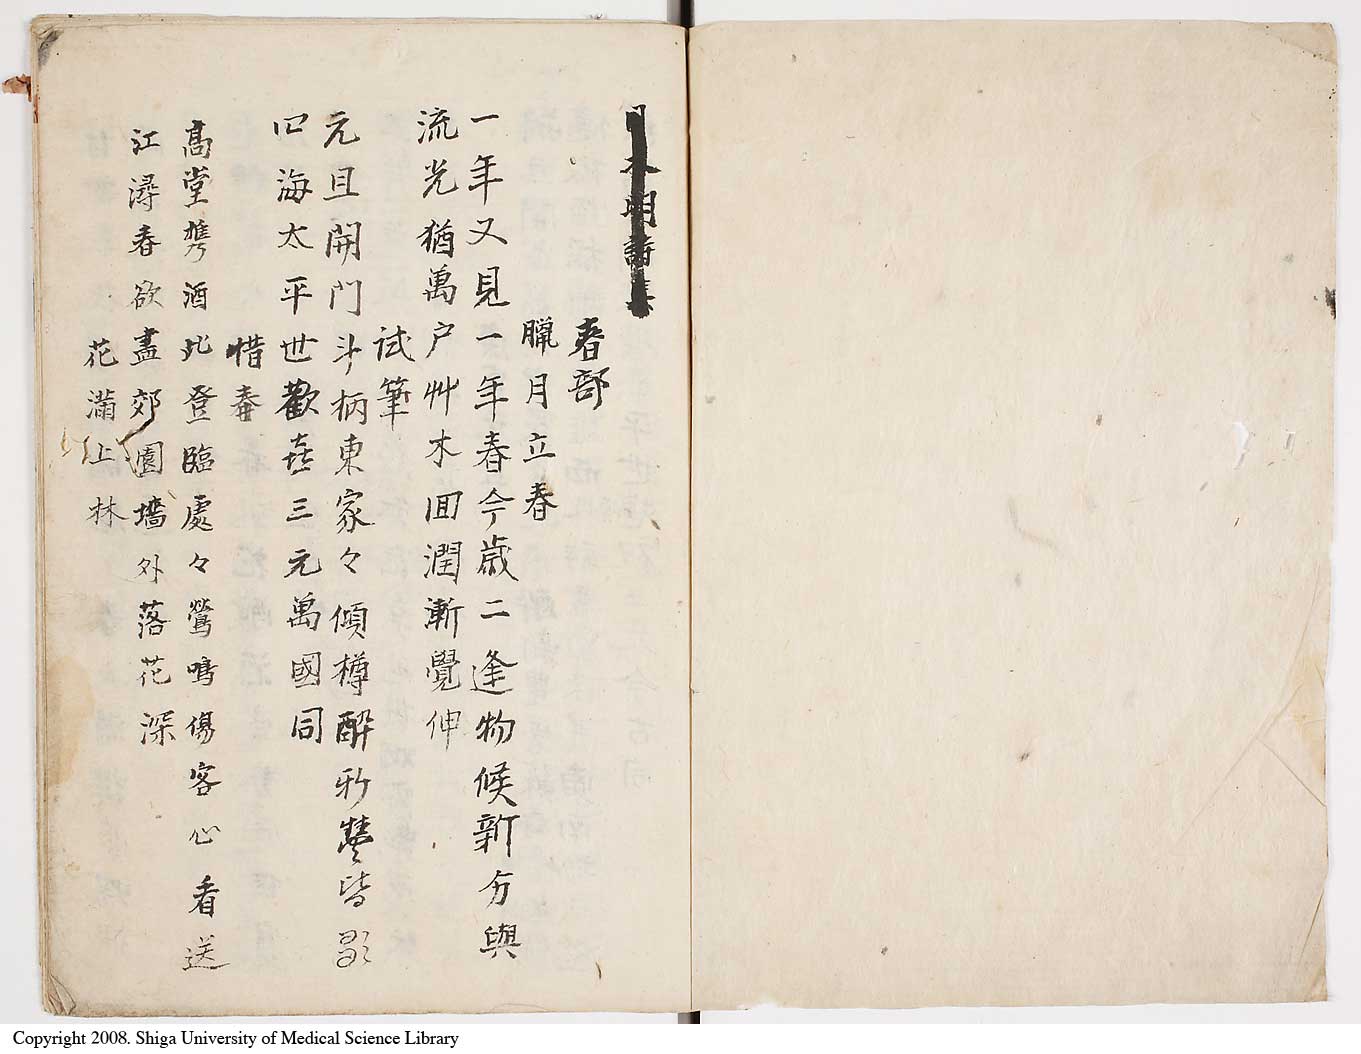 木明詩集
春部
臘月立春
一年又見一年春今歳二逢物候新方與
流光猶萬户艸木囬潤漸覺伸
試筆
元旦開門斗柄東家々傾樽酔新豐皆歌
四海太平世歡㐂三元萬國同
惜春
高堂携酒此登臨處々鶯鳴傷客心看送
江潯春欲盡郊園墻外落花深
花滿上林
Copyright 2008. Shiga University of Medical Science Library